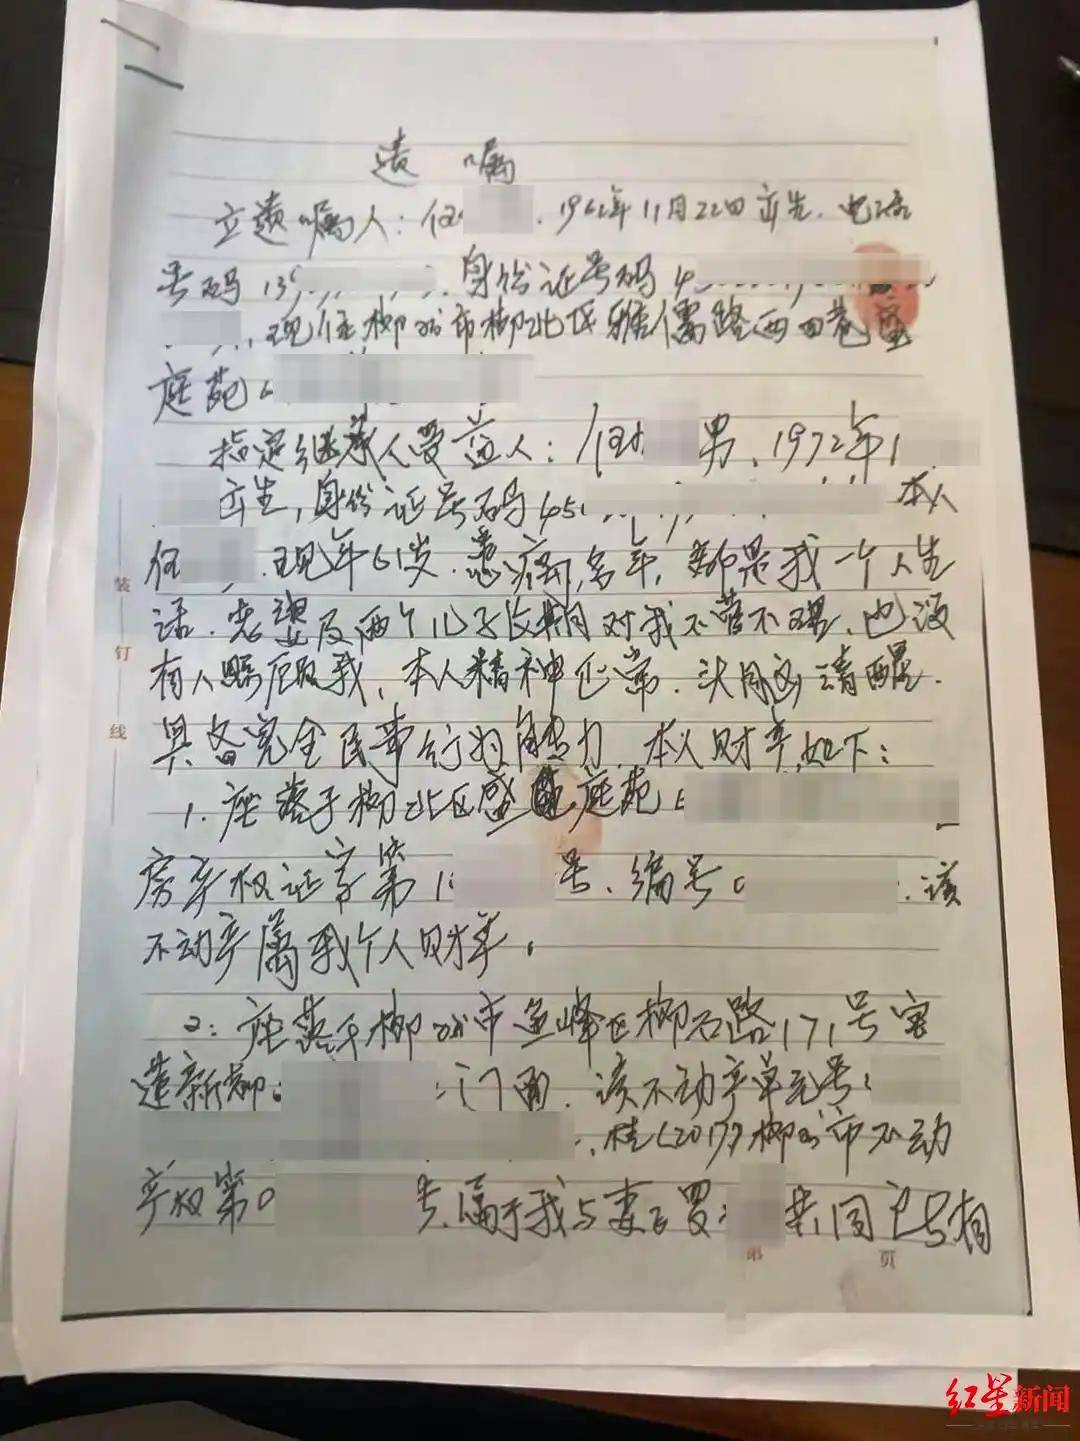 遗嘱
立遗嘱人：任 . 1962年11月22日产生. 电话
号码 139 . 身份证号码 4
. 现住柳州市柳北区雅儒路西四巷盛
庭苑
指定继承人受益人：任 男、1972年1
产生, 身份证号码450 本人
任 . 现年61岁. 患病多年, 都是我一个人生
活. 老婆及两个儿子长期对我不管不理、也没
有人照顾我, 本人精神正常. 头脑清醒.
具备完全民事行为能力. 本人财产如下：
1. 座落于柳北区盛 庭苑
房产权证字第1 号、编号0 . 该
不动产属我个人财产.
2：座落于柳州市鱼峰区柳石路171号宝
莲新都 门面. 该不动产单元号：
, 桂(2017)柳州市不动
产权第0 号. 属于我与妻子罗 共同占有
装
订
线
第 页
红星新闻